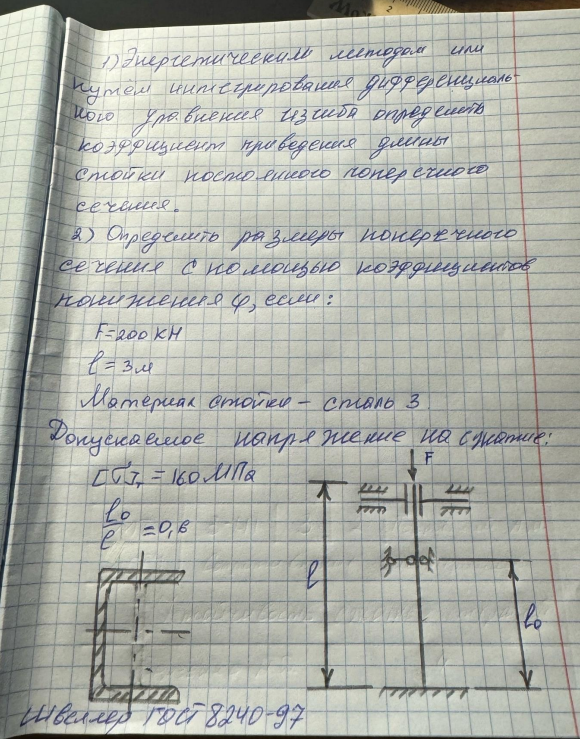 1) Энергетическим методом или
путем интегрирования дифференциаль-
ного уравнения изгиба определить
коэффициент приведения длины
стойки постоянного поперечного
сечения.
2) Определить размеры поперечного
сечения с помощью коэффициентов
понижения φ, если:
F=200 кН
l = 3м
Материал стойки – сталь 3
Допускаемое напряжение на сжатие:
[σ]₋ = 160 МПа
l₀/l = 0,6
F
l
l₀
Швеллер ГОСТ 8240-97